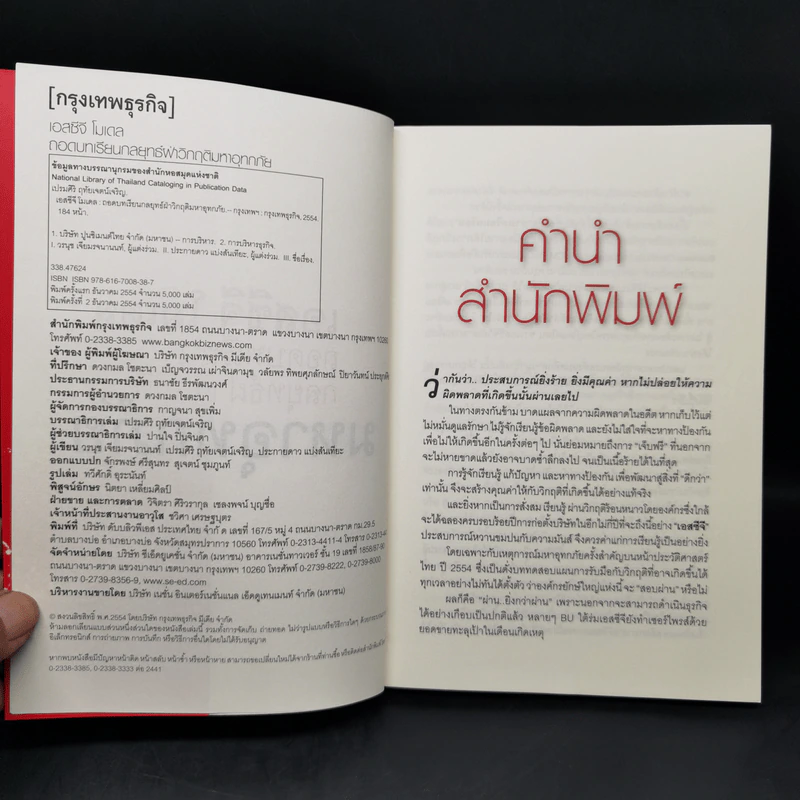 [กรุงเทพธุรกิจ]
เอสซีจี โมเดล
ถอดบทเรียนกลยุทธ์ฝ่าวิกฤติมหาอุทกภัย
ข้อมูลทางบรรณานุกรมของสำนักหอสมุดแห่งชาติ
National Library of Thailand Cataloging in Publication Data
เปรมศิริ ฤทัยเจตน์เจริญ.
เอสซีจี โมเดล : ถอดบทเรียนกลยุทธ์ฝ่าวิกฤติมหาอุทกภัย.-- กรุงเทพฯ : กรุงเทพธุรกิจ, 2554.
184 หน้า.
1. บริษัท ปูนซิเมนต์ไทย จำกัด (มหาชน) -- การบริหาร. 2. การบริหารธุรกิจ.
I. วรนุช เจียมรจนานนท์, ผู้แต่งร่วม. II. ประกายดาว แบ่งสันเทียะ, ผู้แต่งร่วม. III. ชื่อเรื่อง.
338.47624
ISBN ISBN 978-616-7008-38-7
พิมพ์ครั้งแรก ธันวาคม 2554 จำนวน 5,000 เล่ม
พิมพ์ครั้งที่ 2 ธันวาคม 2554 จำนวน 5,000 เล่ม
สำนักพิมพ์กรุงเทพธุรกิจ เลขที่ 1854 ถนนบางนา-ตราด แขวงบางนา เขตบางนา กรุงเทพฯ 10260
โทรศัพท์ 0-2338-3385 www.bangkokbiznews.com
เจ้าของ ผู้พิมพ์ผู้โฆษณา บริษัท กรุงเทพธุรกิจ มีเดีย จำกัด
ที่ปรึกษา ดวงกมล โชตะนา เบ็ญจวรรณ เผ่าจินดามุข วลัยพร ทิพยศุภลักษณ์ ปิยาวันทน์
ประธานกรรมการบริษัท ธนาชัย ธีรพัฒนวงศ์
กรรมการผู้อำนวยการ ดวงกมล โชตะนา
ผู้จัดการกองบรรณาธิการ กาญจนา สุขเพิ่ม
บรรณาธิการเล่ม เปรมศิริ ฤทัยเจตน์เจริญ
ผู้ช่วยบรรณาธิการเล่ม ปานใจ ปิ่นจินดา
ผู้เขียน วรนุช เจียมรจนานนท์ เปรมศิริ ฤทัยเจตน์เจริญ ประกายดาว แบ่งสันเทียะ
ออกแบบปก จักรพงษ์ ศรีสุนทร สุเจตน์ ชุมภูนท์
รูปเล่ม ทวีศักดิ์ อุระนันท์
พิสูจน์อักษร นิตยา เหลี่ยมศิลป์
ฝ่ายขาย และการตลาด วิจิตรา ศิริวรากุล เชลงพจน์ บุญซื่อ
เจ้าหน้าที่ประสานงานอาวุโส ชวิศา เศรษฐบุตร
พิมพ์ที่ บริษัท ดับบลิวพีเอส ประเทศไทย จำกัด เลขที่ 167/5 หมู่ 4 ถนนบางนา-ตราด กม.29.5
ตำบลบางบ่อ อำเภอบางบ่อ จังหวัดสมุทรปราการ 10560 โทรศัพท์ 0-2313-4411-4 โทรสาร
จัดจำหน่ายโดย บริษัท ซีเอ็ดยูเคชั่น จำกัด (มหาชน) อาคารเนชั่นทาวเวอร์ ชั้น 19 เลขที่ 1858/87-90
ถนนบางนา-ตราด แขวงบางนา เขตบางนา กรุงเทพฯ 10260 โทรศัพท์ 0-2739-8222, 0-2739-8000
โทรสาร 0-2739-8356-9, www.se-ed.com
บริหารงานขายโดย บริษัท เนชั่น อินเตอร์เนชั่นแนล เอ็ดดูเทนเมนท์ จำกัด (มหาชน)
© สงวนลิขสิทธิ์ พ.ศ.2554 โดยบริษัท กรุงเทพธุรกิจ มีเดีย จำกัด
ห้ามลอกเลียนแบบส่วนหนึ่งส่วนใดของหนังสือเล่มนี้ รวมทั้งการจัดเก็บ ถ่ายทอด ไม่ว่ารูปแบบหรือวิธีการใดๆ ด้วย
อิเล็กทรอนิกส์ การถ่ายภาพ การบันทึก หรือวิธีการอื่นใดโดยไม่ได้รับอนุญาต
หากพบหนังสือมีปัญหาหน้าติด หน้าสลับ หน้าซ้ำ หรือหน้าหาย สามารถขอเปลี่ยนใหม่ได้จากร้านที่ท่านซื้อ หรือติดต่อ
0-2338-3385, 0-2338-3333 ต่อ 2441
คำนำ
สำนักพิมพ์
ว่ากันว่า.. ประสบการณ์ยิ่งร้าย ยิ่งมีคุณค่า หากไม่ปล่อยให้ความ
ผิดพลาดที่เกิดขึ้นนั้นผ่านเลยไป
ในทางตรงกันข้าม บาดแผลจากความผิดพลาดในอดีต หากเก็บไว้แต่
ไม่หมั่นดูแลรักษา ไม่รู้จักเรียนรู้ข้อผิดพลาด และยังไม่ใส่ใจที่จะหาทางป้องกัน
เพื่อไม่ให้เกิดขึ้นอีกในครั้งต่อๆ ไป นั่นย่อมหมายถึงการ "เจ็บฟรี" ที่นอกจาก
จะไม่หายขาดแล้วยังอาจบาดซ้ำลึกลงไป จนเป็นเนื้อร้ายได้ในที่สุด
การรู้จักเรียนรู้ แก้ปัญหา และหาทางป้องกัน เพื่อพัฒนาสู่สิ่งที่ "ดีกว่า"
เท่านั้น จึงจะสร้างคุณค่าให้กับวิกฤติที่เกิดขึ้นได้อย่างแท้จริง
และยิ่งหากเป็นการสั่งสม เรียนรู้ ผ่านวิกฤติร้อนหนาวโดยองค์กรซึ่งใกล้
จะได้ฉลองครบรอบร้อยปีการก่อตั้งบริษัทในอีกไม่กี่ปีที่จะถึงนี้อย่าง "เอสซีจี"
ประสบการณ์หวานขมปนกับความมันส์ จึงควรค่าแก่การเรียนรู้เป็นอย่างยิ่ง
โดยเฉพาะกับเหตุการณ์มหาอุทกภัยครั้งสำคัญบนหน้าประวัติศาสตร์
ไทย ปี 2554 ซึ่งเป็นดั่งบททดสอบแผนการรับมือกับวิกฤติที่อาจเกิดขึ้นได้
ทุกเวลาอย่างไม่ทันได้ตั้งตัว ว่าองค์กรยักษ์ใหญ่แห่งนี้ จะ "สอบผ่าน" หรือไม่
ผลก็คือ "ผ่าน..ยิ่งกว่าผ่าน" เพราะนอกจากจะสามารถดำเนินธุรกิจ
ได้อย่างเกือบเป็นปกติแล้ว หลายๆ BU ใต้ร่มเอสซีจียังทำเซอร์ไพรส์ด้วย
ยอดขายทะลุเป้าในเดือนเกิดเหตุ